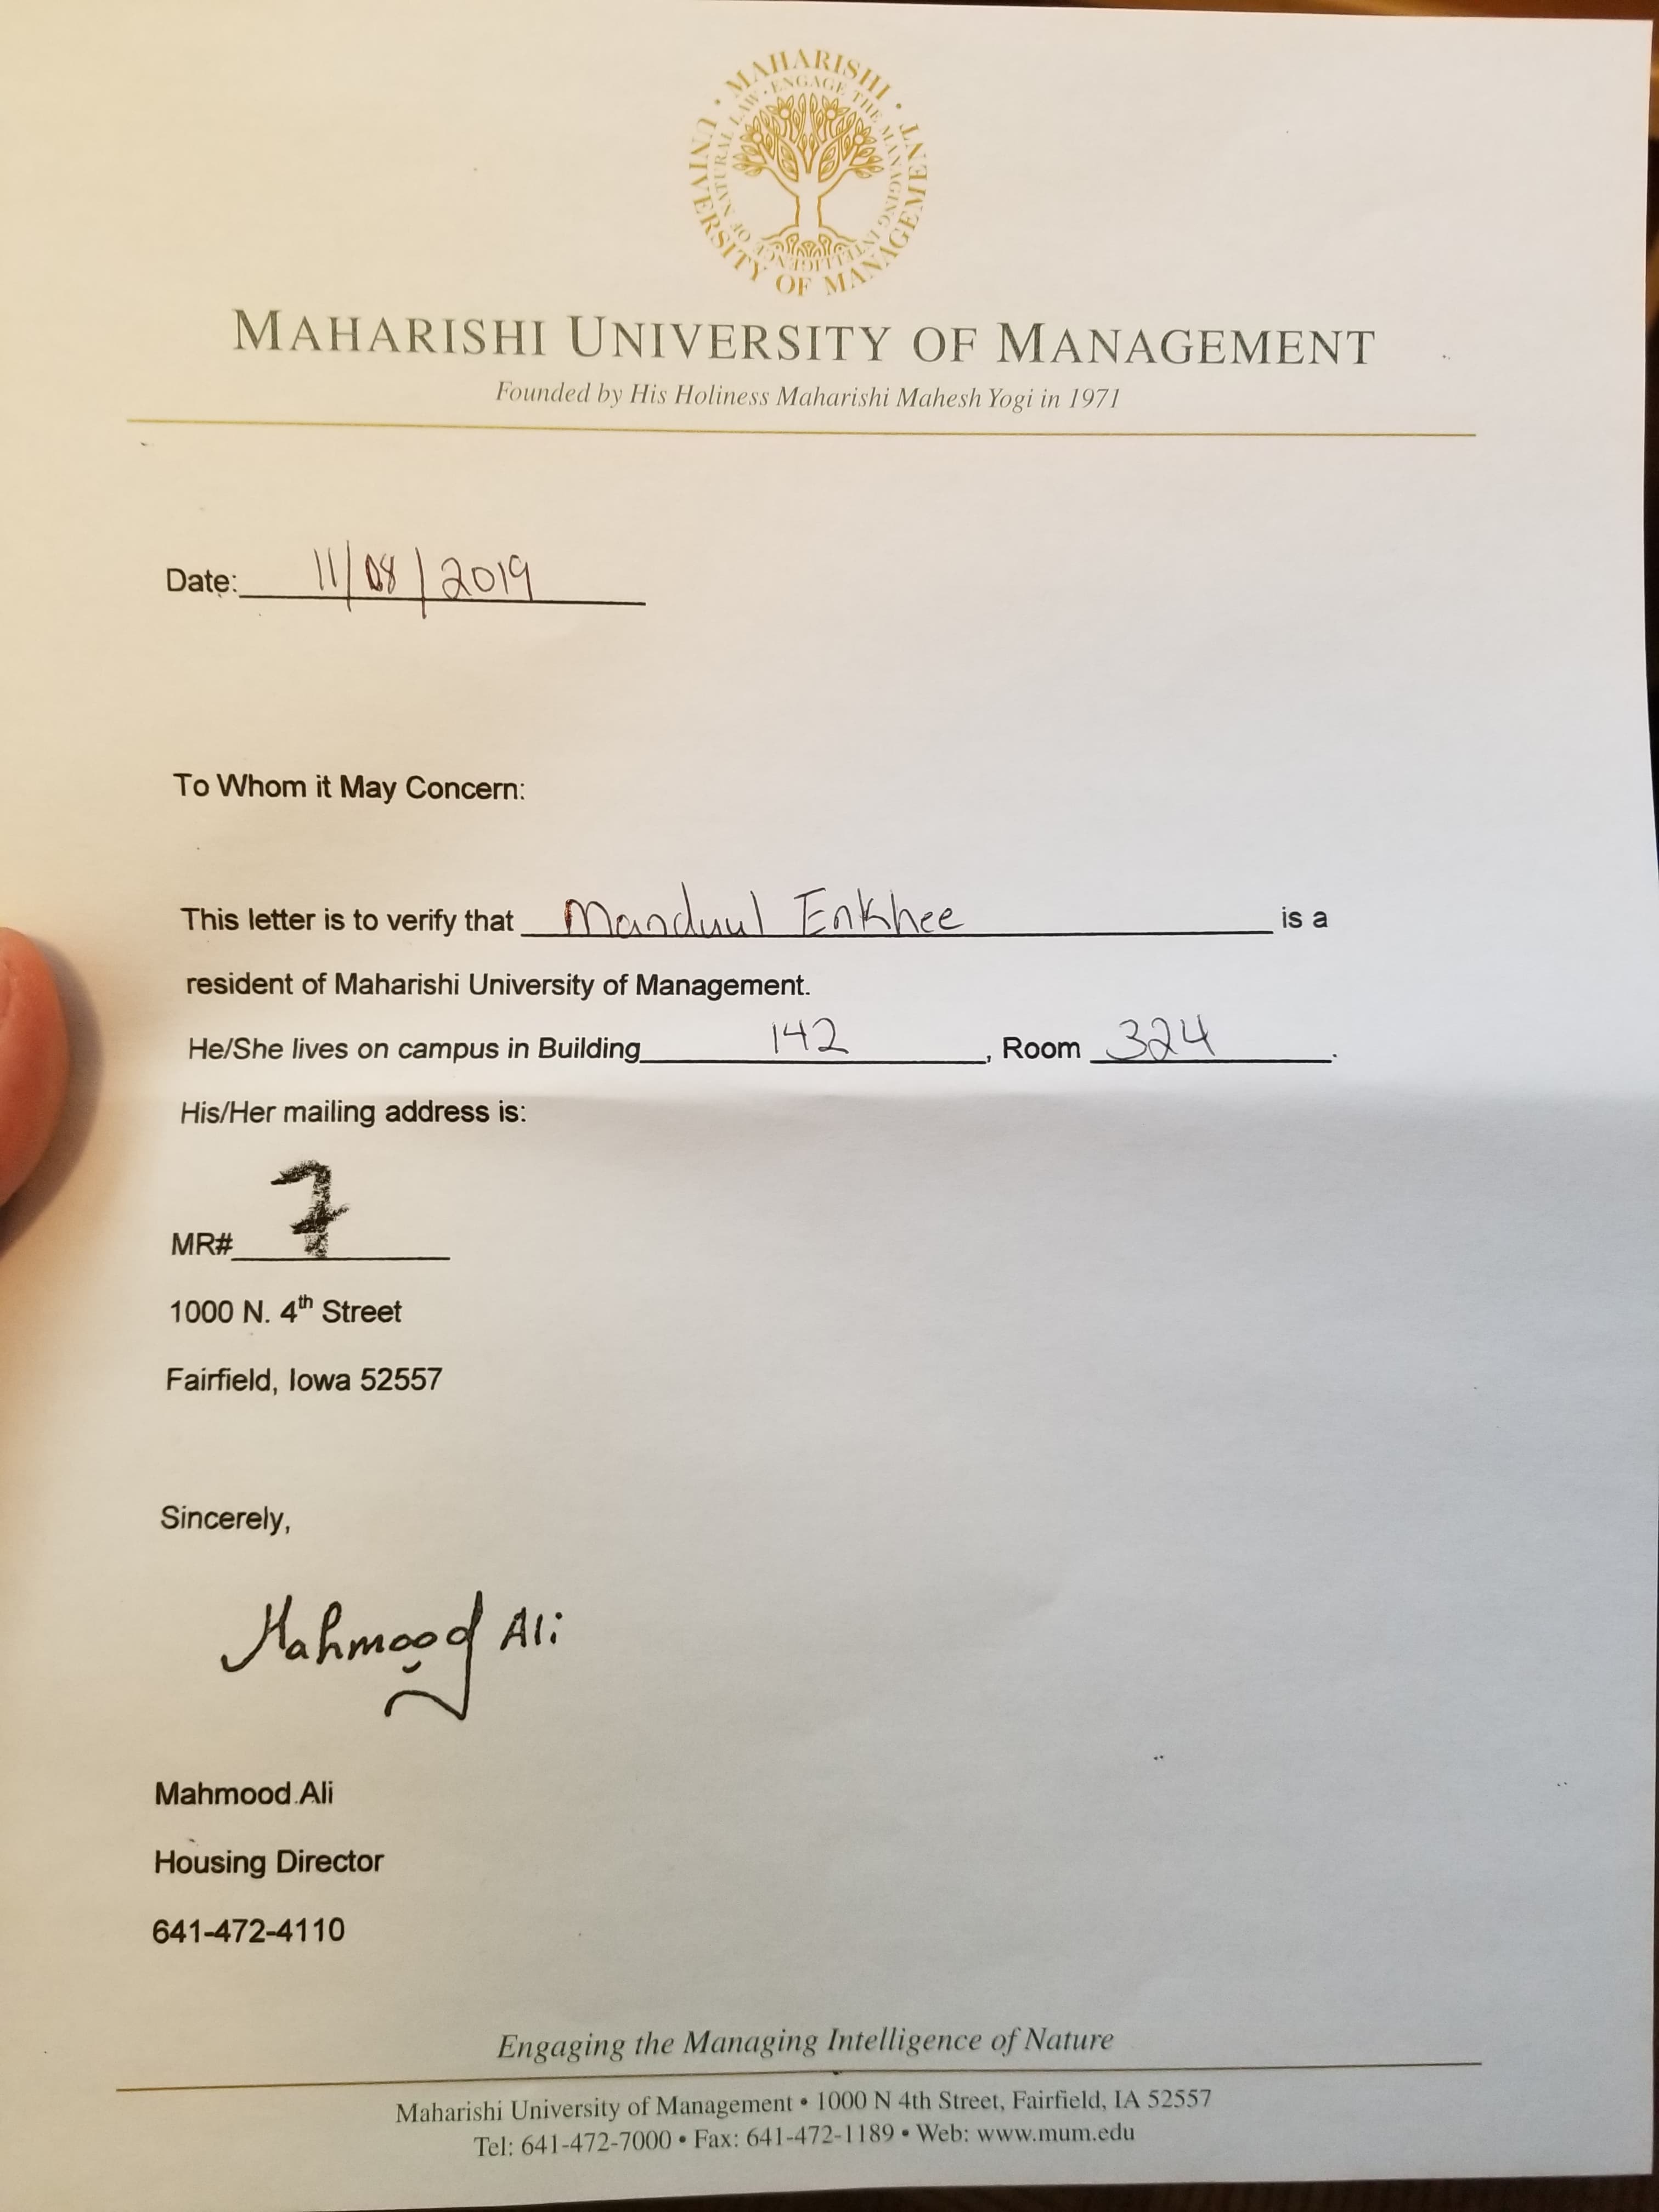 MAHARISHI · UNIVERSITY OF MANAGEMENT ·
ENGAGE THE MANAGING INTELLIGENCE OF NATURAL LAW ·
MAHARISHI UNIVERSITY OF MANAGEMENT
Founded by His Holiness Maharishi Mahesh Yogi in 1971
Date: 11/08/2019
To Whom it May Concern:
This letter is to verify that Manduul Enkhee is a
resident of Maharishi University of Management.
He/She lives on campus in Building 142, Room 324.
His/Her mailing address is:
MR# 7
1000 N. 4th Street
Fairfield, Iowa 52557
Sincerely,
Mahmood Ali
Mahmood Ali
Housing Director
641-472-4110
Engaging the Managing Intelligence of Nature
Maharishi University of Management • 1000 N 4th Street, Fairfield, IA 52557
Tel: 641-472-7000 • Fax: 641-472-1189 • Web: www.mum.edu